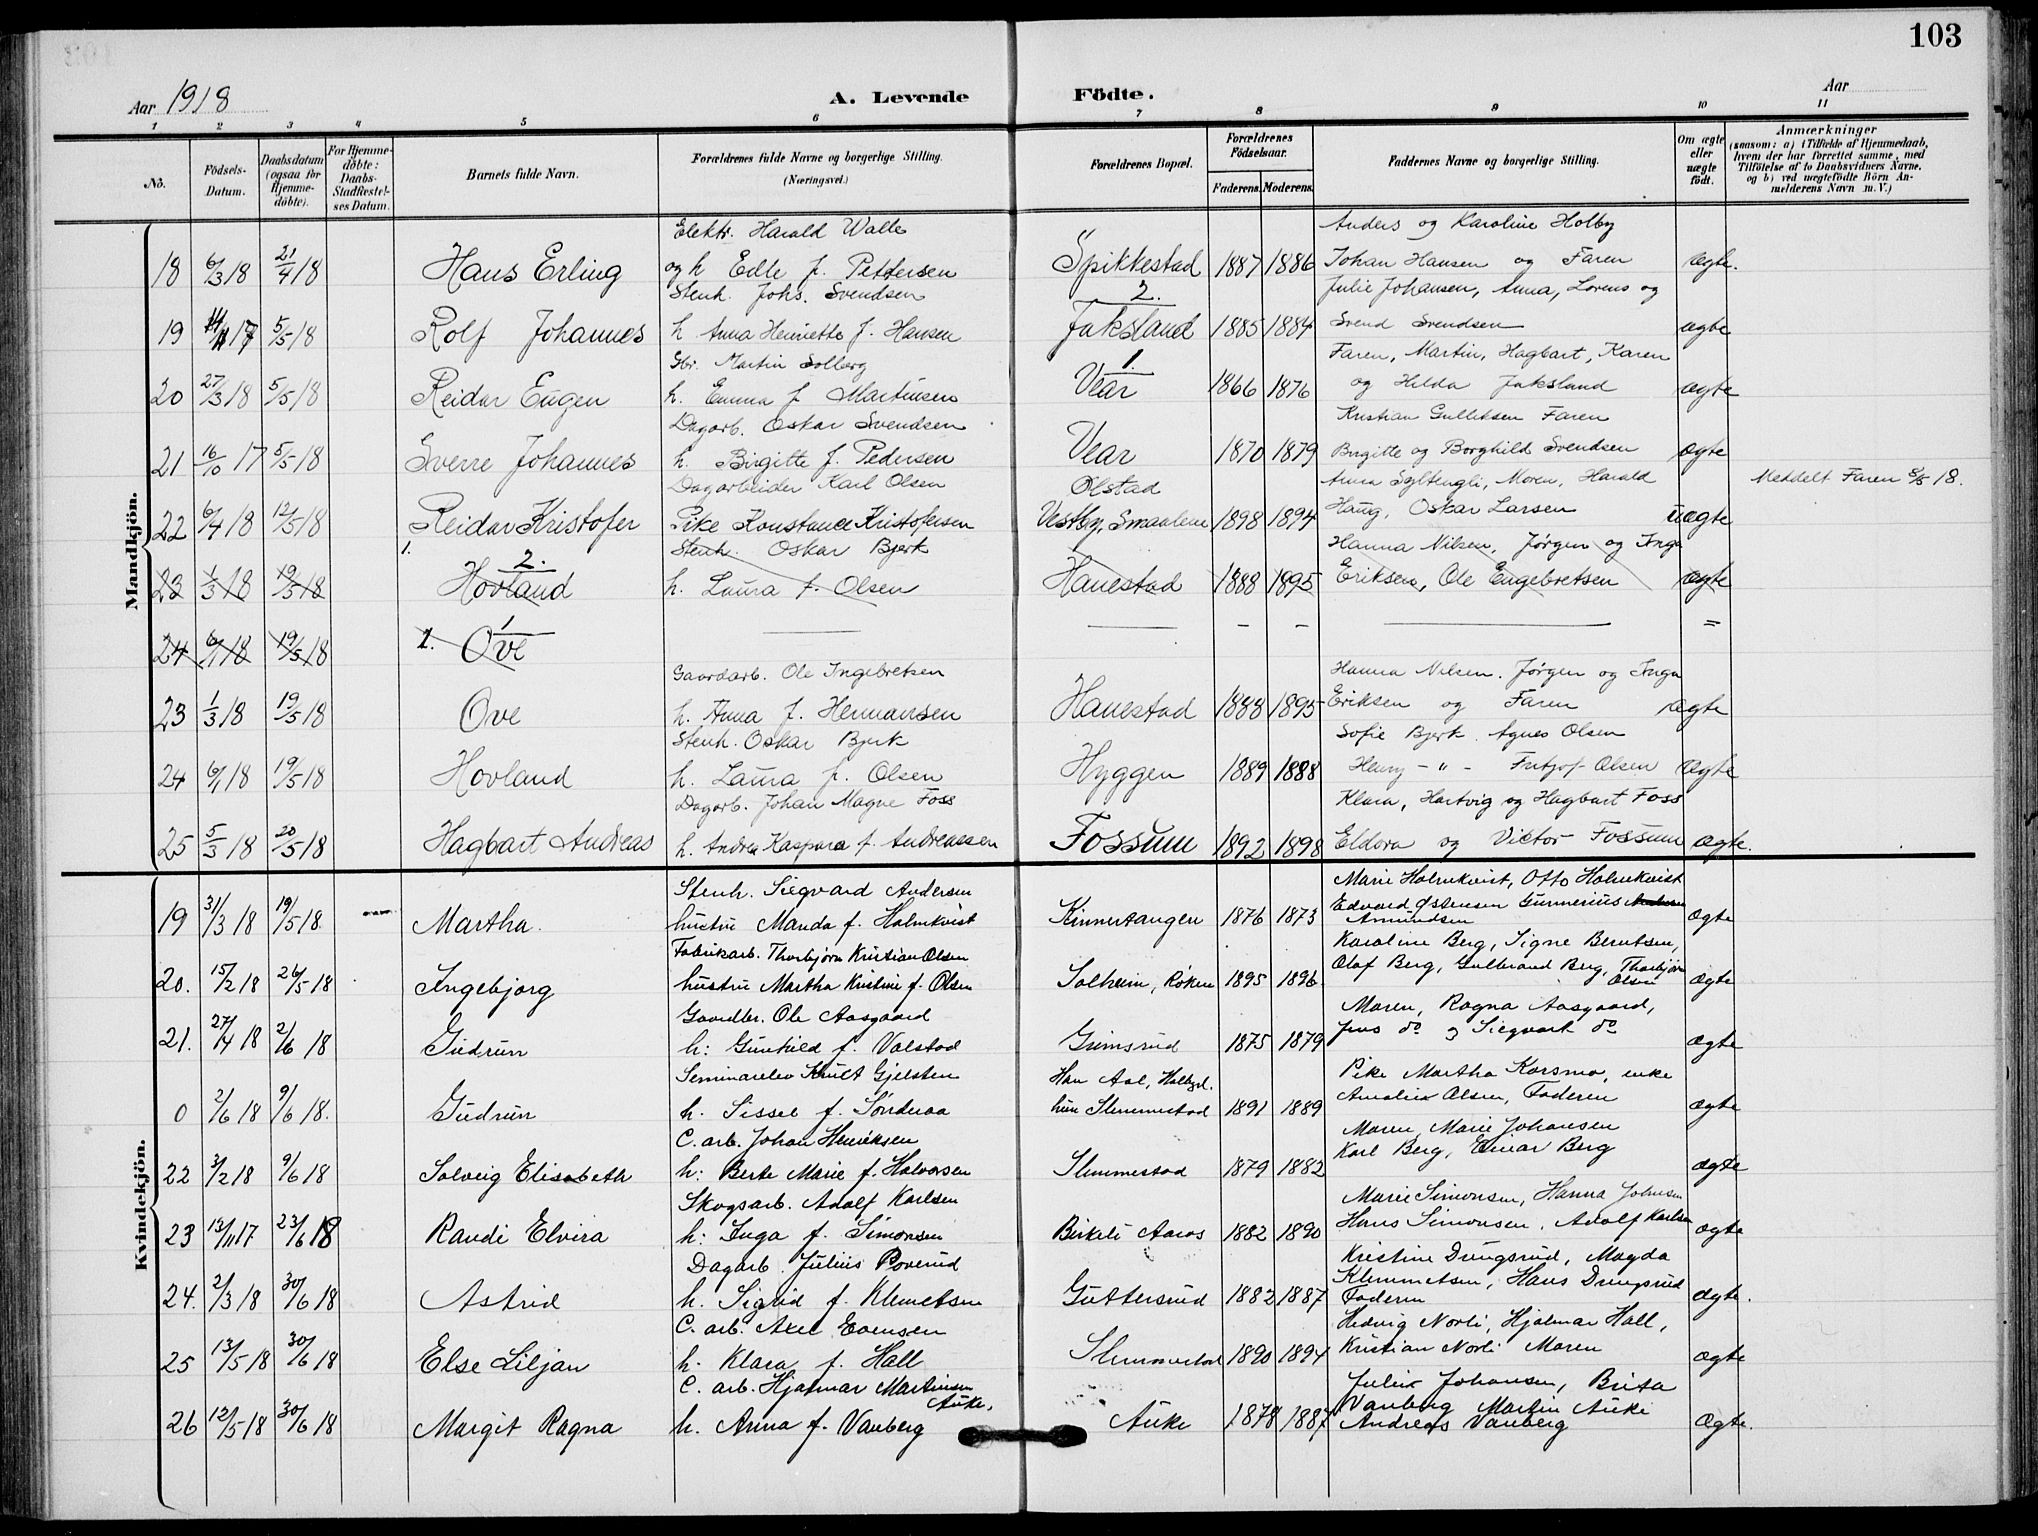 103
Aar 1918
A. Levende Födte.
Aar
1 2 3 4 5 6 7 8 9 10 11
No.
Födsels-Datum.
Daabsdatum (ogsaa for Hjemme-döbte).
For Hjemme-döbte: Daabs-Stadfæstel-ses Datum.
Barnets fulde Navn.
Forældrenes fulde Navne og borgerlige Stilling. (Næringsvei.)
Forældrenes Bopæl.
Forældrenes Födselsaar.
Faderens. Moderens.
Faddernes Navne og borgerlige Stilling.
Om ægte eller uægte födt.
Anmærkninger
(saasom: a) i Tilfælde af Hjemmedaab, hvem der har forrettet samme, med Tilföielse af to Daabsvidners Navne, og b) ved uægtefödte Börn Anmelderens Navn m. V.)
Mandkjön.
Elektr. Harald Walle Anders og Karoline Holby
18 6/3 18 21/4 18 Hans Erling og h Edle f. Pettersen Spikkestad 1887 1886 Johan Hansen og Faren ægte.
Stenh. Johs. Svendsen 2. Julie Johansen, Anna, Lorens og
19 17 5/5 18 Rolf Johannes h Anna Henriette f. Hansen Jaksland 1885 1884 Svend Svendsen ægte
Gbr. Martin Solberg 1. Faren, Martin, Hagbart, Karen
20 27/3 18 5/5 18 Reidar Eugen h. Emma f Martinsen Vear 1866 1876 og Hilda Jaksland ægte
Dagarb. Oskar Svendsen Kristian Gulliksen Faren
21 16/10 17 5/5 18 Sverre Johannes h. Birgitte f. Pedersen Vear 1870 1879 Birgitte og Borghild Svendsen ægte
Dagarbeider Karl Olsen Ølstad Anna Syltengli, Moren, Harald Meddelt Faren 8/5 18.
22 6/4 18 12/5 18 Reidar Kristofer Pike Konstance Kristofersen Vestby, Smaalene 1898 1894 Haug, Oskar Larsen uægte
1. 2. Stenh. Oskar Bjerk Hanna Nilsen, Jørgen og Inga
23 1/3 18 19/5 18 Hovland h. Laura f. Olsen Hanestad 1888 1895 Eriksen, Ole Engebretsen ægte
24 6/1 18 19/5 18 1. 1 Ove — — - - — =
Gaardarb. Ole Ingebretsen Hanna Nilsen. Jørgen og Inga
23 1/3 18 19/5 18 Ove h. Anna f. Hermansen Hanestad 1888 1895 Eriksen og Faren ægte
Stenh. Oskar Bjerk Sofie Bjerk. Agnes Olsen
24 6/1 18 19/5 18 Hovland h. Laura f. Olsen Hyggen 1889 1888 Henry - " - Fritjof Olsen ægte
Dagarb. Johan Magne Foss Klara, Hartvig og Hagbart Foss
25 5/3 18 20/5 18 Hagbart Andreas h. Andrea Kaspara f. Andreassen Fossum 1892 1898 Eldora og Victor Fossum ægte.
Kvindekjön.
Stenh. Siegvard Andersen Marie Holmkvist, Otto Holmkvist
19 31/3 18 19/5 18. Martha. hustru Manda f. Holmkvist Kinnertangen 1876 1873 Edvard Østensen Gunnerius Amundsen ægte
Fabrikarb. Thorbjørn Kristian Olsen Karoline Berg, Signe Berntsen,
20. 15/2 18 26/5 18 Ingebjørg hustru Martha Kristine f. Olsen Solheim, Røken 1895 1896 Olaf Berg, Gulbrand Berg, Thorbjørn Olsen ægte
Gaardbr. Ole Aasgaard Moren, Ragna Aasgaard,
21. 27/4 18 2/6 18 Gudrun h: Gunhild f. Valstad Grimsrud 1875 1879 Jens do og Siegvart do ægte
Seminarelev Knut Gjelsten Han Aal, Hallgd. Pike Martha Korsmo, enke
0 2/6 18 9/6 18. Gudrun h. Sissel f. Sønderaa hun Slemmestad 1891 1889 Amalie Olsen, Faderen ægte
C. arb. Johan Henriksen Moren, Marie Johansen
22 3/2 18 9/6 18 Solveig Elisabeth h: Berte Marie f. Halvorsen Slemmestad 1879 1882 Karl Berg, Einar Berg ægte
Skogsarb. Adolf Karlsen Marie Simonsen, Hanna Johnsen
23 13/11 17 23/6 18 Randi Elvira h: Inga f. Simonsen Birkeli Aaros 1882 1890 Hans Simonsen, Adolf Karlsen ægte
Dagarb. Julius Poverud Kristine Dungsrud, Magda
24. 2/3 18 30/6 18 Astrid h. Sigrid f. Klemetsen Guttersrud 1882 1887 Klemmetsen, Hans Dungsrud Faderen ægte.
C. arb. Axel Evensen Hedvig Norli, Hjalmar Hall,
25 13/5 18 30/6 18 Else Liljan h. Klara f. Hall Slemmestad 1890 1894 Kristian Norli Moren ægte
C. arb. Hjalmar Martinsen Auke, Julie Johansen, Brita
26 12/5 18 30/6 18 Margit Ragna h. Anna f. Vanberg Auke 1878 1887 Vanberg Martin Auke Andreas Vanberg Ægte.